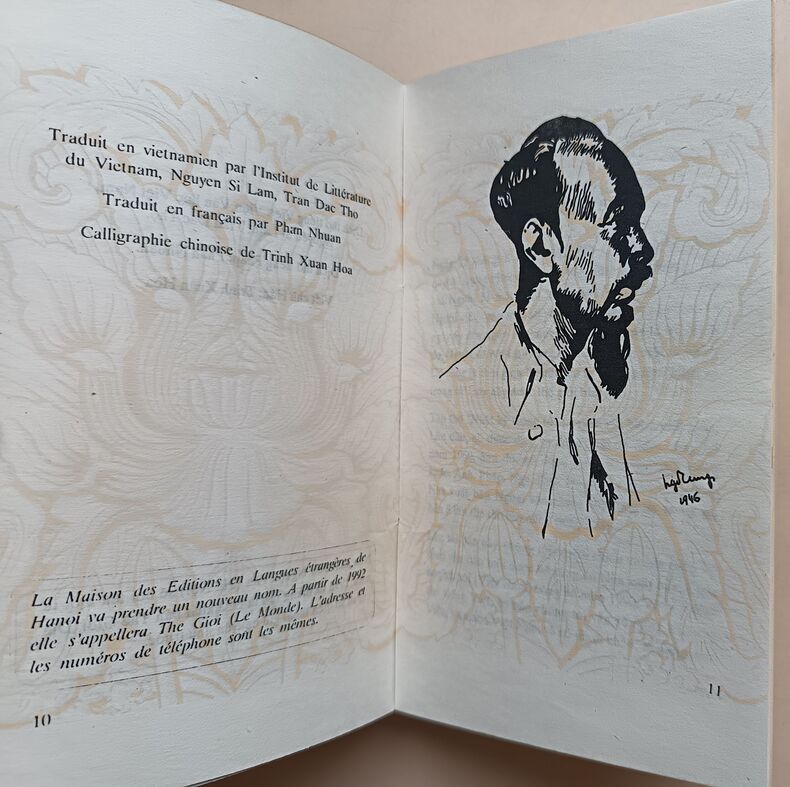 Traduit en vietnamien par l'Institut de Littérature
du Vietnam, Nguyen Si Lam, Tran Dac Tho
Traduit en français par Phan Nhuan
Calligraphie chinoise de Trinh Xuan Hoa
La Maison des Editions en Langues étrangères de
Hanoi va prendre un nouveau nom. A partir de 1992
elle s'appellera The Gioi (Le Monde). L'adresse et
les numéros de téléphone sont les mêmes.
10
1946
11